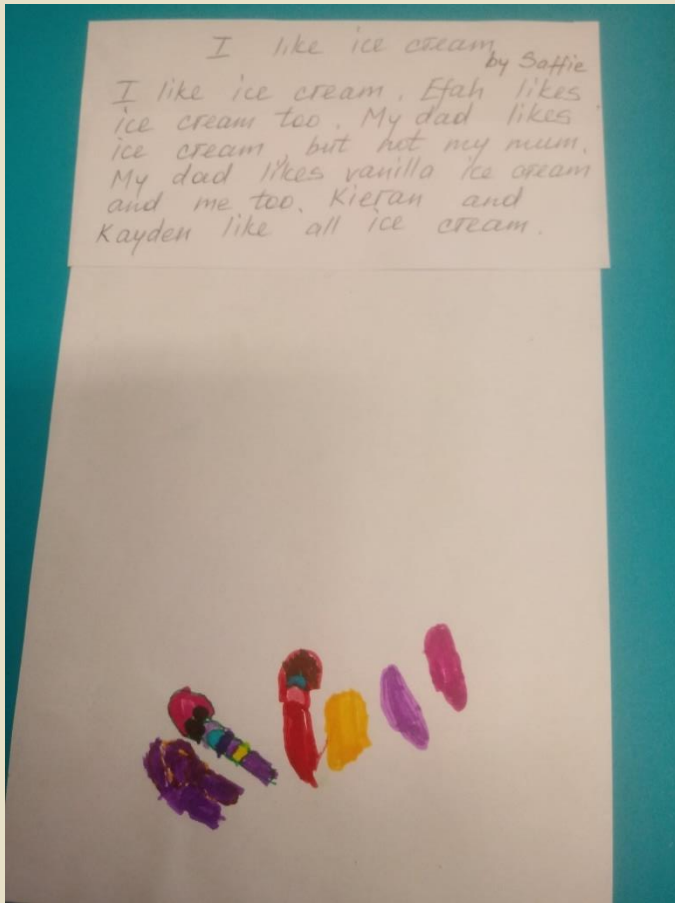 I like ice cream
by Saffie
I like ice cream. Efah likes
ice cream too. My dad likes
ice cream, but not my mum.
My dad likes vanilla ice cream
and me too. Kieran and
Kayden like all ice cream.